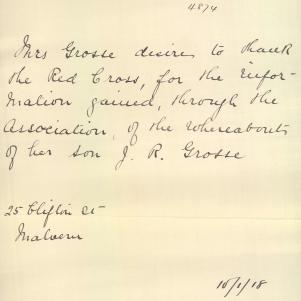 4874
Mrs Grosse desires to thank
the Red Cross, for the infor-
mation gained, through the
Association, of the whereabouts
of her son J. R. Grosse
25 Clifton St
Malvern
10/1/18